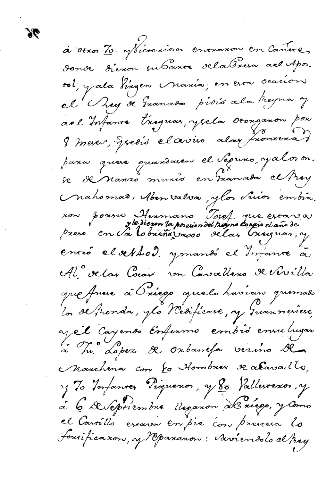 á otro To y Victorioso entraron en Cañete
donde dieron su Parte de la Presa al Apos-
tol, y ala Virgen Maria, en esta ocasion
el Rey de Granada pidió ala Reyna y
a el Infante treguas, y se la otorgaron por
8 meses, quedó el aviso a las fronteras
para que se guardasen el Seguro, y alos on-
se de Marzo murio en Granada el Rey
Mahomad Abenvalva, y los suios embia-
ron por su Hermano Josef que estava
y le dieron la posesion del Reyno luego el año de
preso en Salobreña
de las treguas, y
entró el de 1408, y mandó el Infante á
Al.º de las Casas con Cavalleros de Sevilla
que fuese á Priego que la havian quemado
los de Ronda, y lo Redificase, y Guarneciese
y el Cayendo Enfermo embió en su lugar
á Fu.º Lopez de Orbaneja vecino de
Marchena con 50 Hombres de á Cavallo,
y 70 Infantes Piqueros, y 80 Vallesteros, y
á 6 de Septiembre llegaron á Priego, y como
el Castillo estava en pie con presteza lo
fortificaron, y Repararon: Saviendolo el Rey